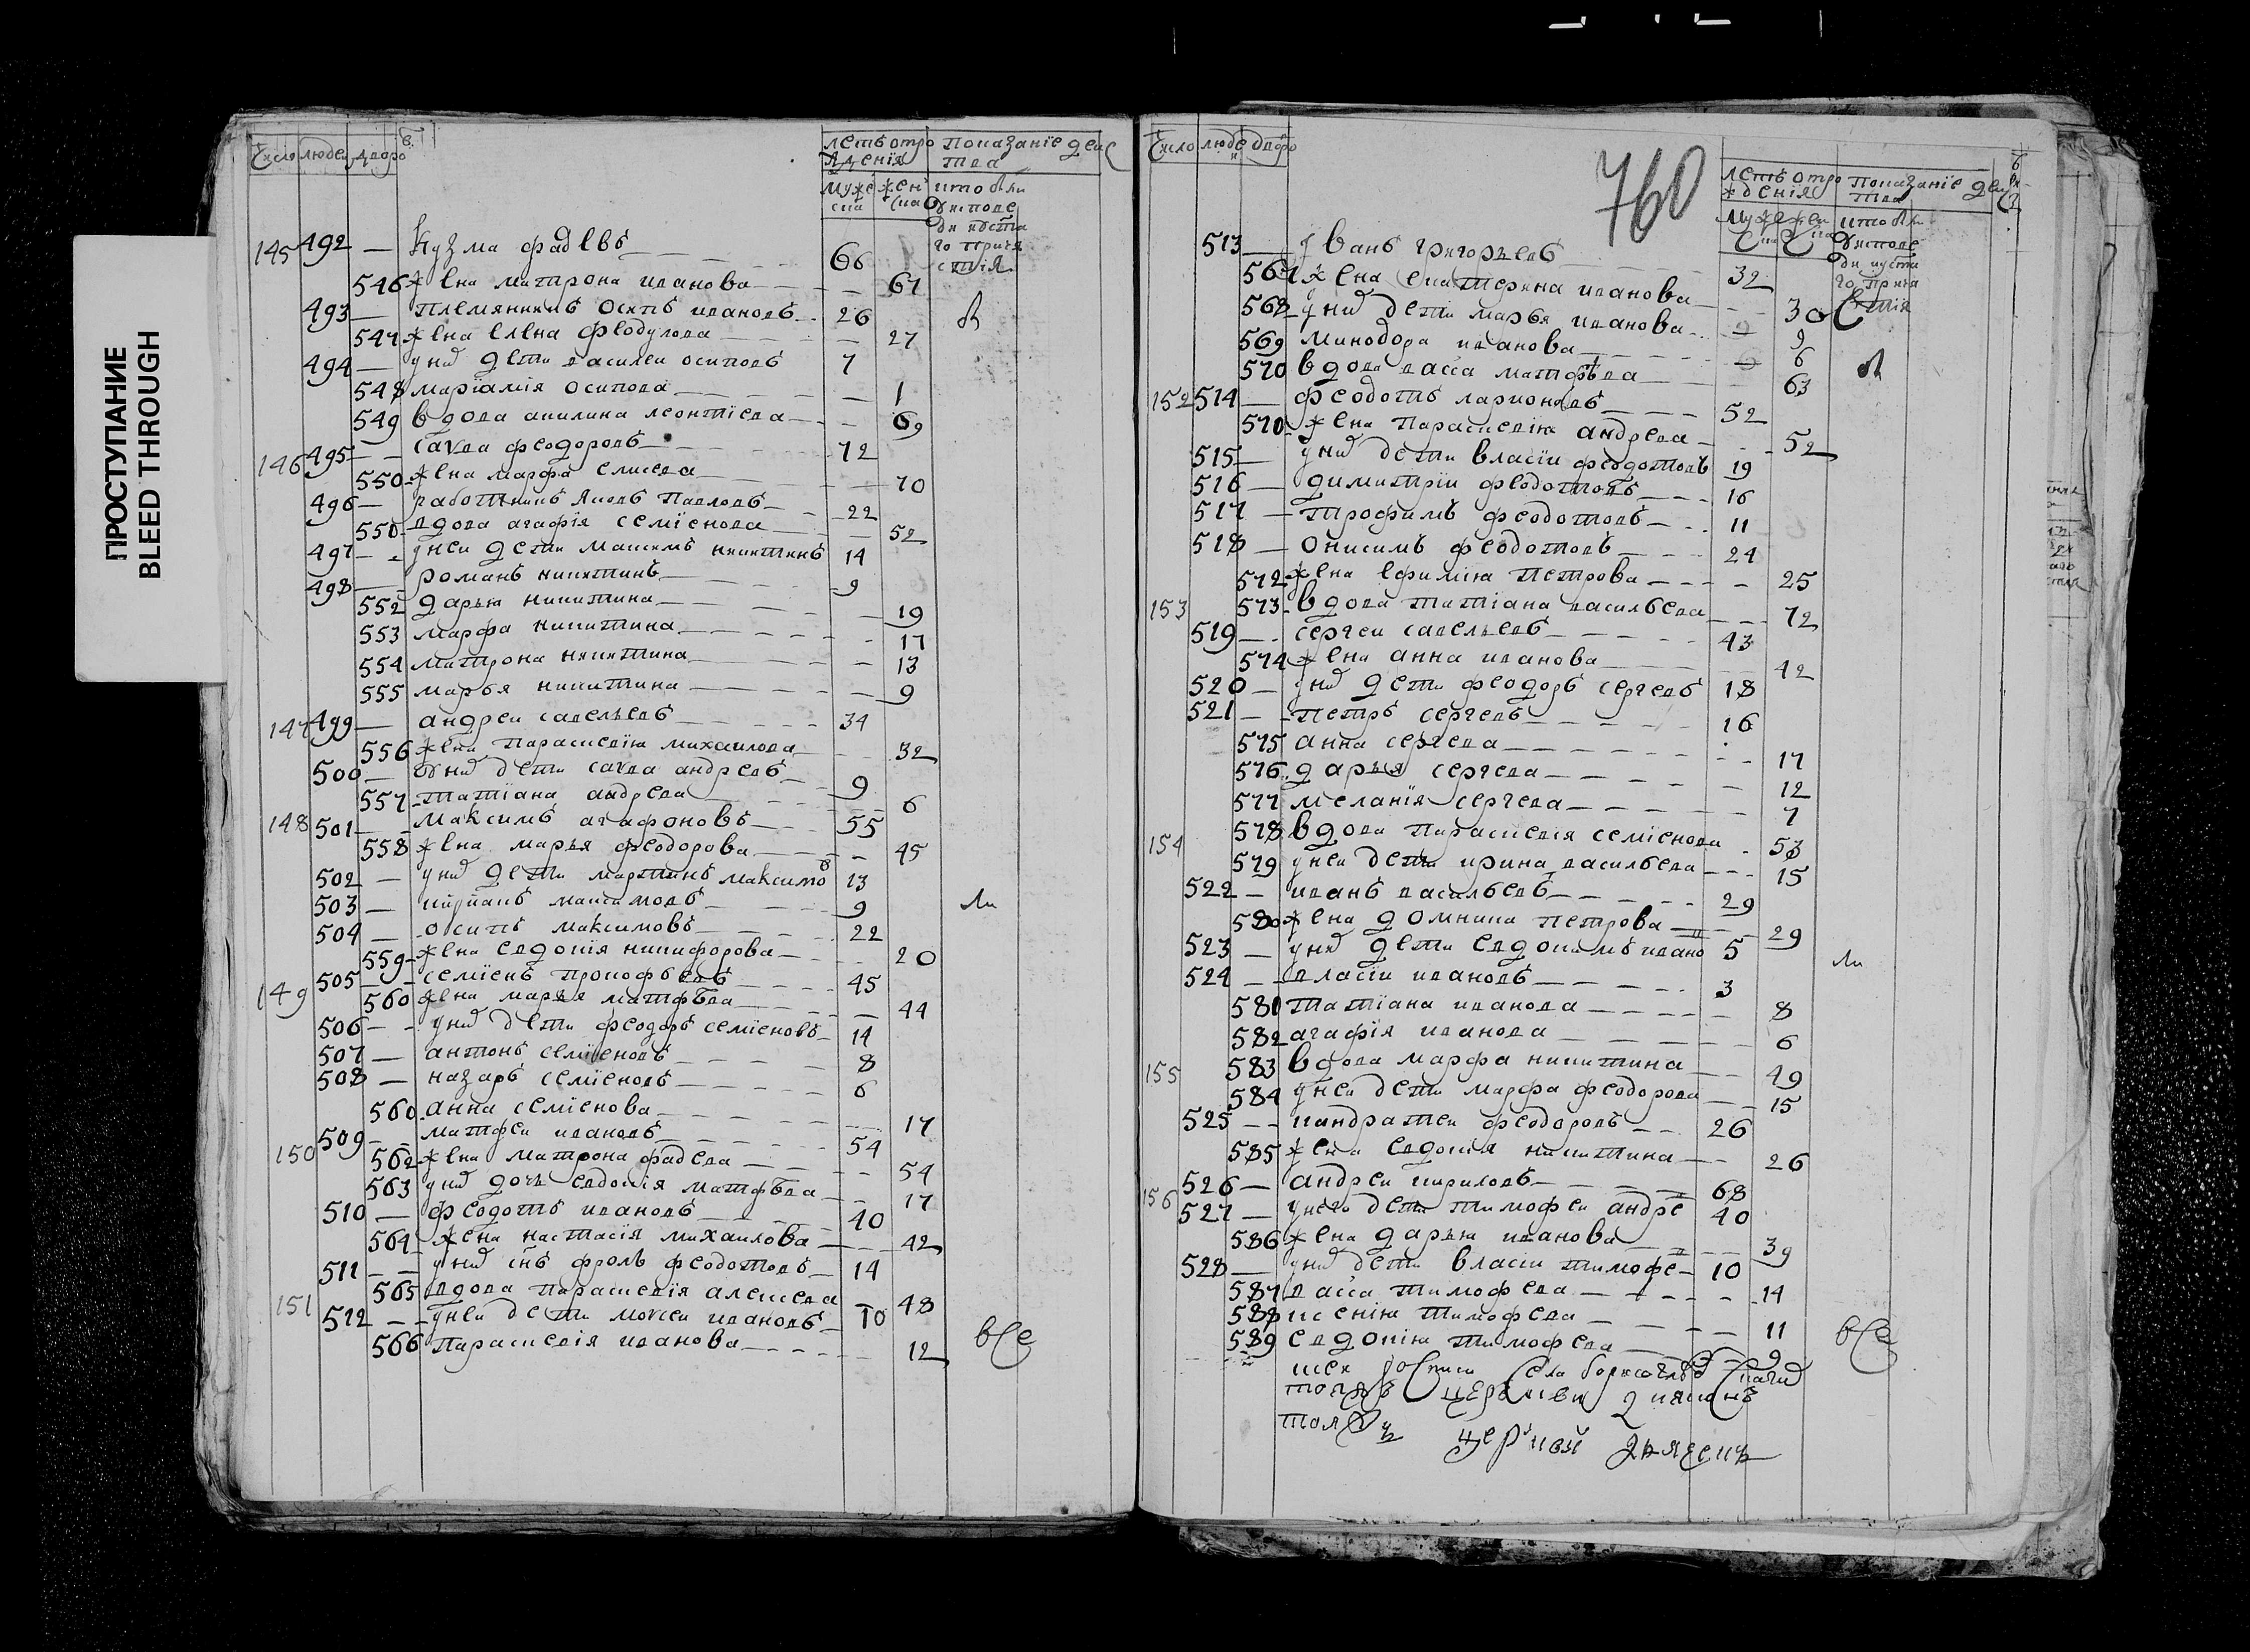 ПРОСТУПАНИЕ
BLEED THROUGH
Число людеи дворо
в
летъ отро
жденiя
Показанiе деис
тва
муже
ска
жен
ска
кто были
у исповѣ
ди и свѧта
го причя
стiя
145 492 — Кузма фадѣевъ 66
546 жена матрона иванова 67
493 — племянникъ осипъ ивановъ 26 б
547 жена елена феодулова 27
494 — у них дети василеи осиповъ 7
548 мариамiя осипова 1
549 вдова акилина леонтiева 69
146 495 — савва феодоровъ 72
550 жена марфа елисеева 70
496 — работникъ Павловъ 22
550 вдова агафiя семiенова 52
497 — у неи дети максимъ никитинъ 14
498 — романъ никитинъ 9
552 дарья никитина 19
553 марфа никитина 17
554 матрона никитина 13
555 марья никитина 9
147 499 — андреи савельевъ 34
556 жена параскевiя михаилова 32
500 — у них дети савва андреевъ 9
557 татiана андреева 6
148 501 — максимъ агафоновъ 55
558 жена марья феодорова 45
502 — у них дети мартинъ максимовъ 13
503 — киpианъ максимовъ 9 ли
504 — осипъ максимовъ 22
559 жена евдокiя никифорова 20
149 505 — семiенъ прокофьевъ 45
560 жена марья матфѣева 44
506 — у них дети феодоръ семiеновъ 14
507 — антонъ семiеновъ 8
508 — назаръ семiеновъ 6
560 анна семiенова 17
150 509 — матфеи ивановъ 54
562 жена матрона фадеева 54
563 у них дочь евдокiя матфѣева 17
510 — феодотъ ивановъ 40
564 жена настасiя михаилова 42
511 — у них снъ фролъ феодотовъ 14
151 565 вдова параскевiя алексеева 48
512 — у неи дети моисеи ивановъ 10
566 параскевiя иванова 12 все
Число люде и дворо
760
летъ отро
жденiя
показанiе деис
тва
муже
ска
жен
ска
кто были
у исповѣ
ди и свѧта
го прича
стiя
513 — иванъ григорьевъ 32
567 жена екатерина иванова 30
568 у них дети марья иванова 9
569 минодора иванова 6 б
570 вдова васса матфѣева 63
152 514 — феодотъ ларионовъ 52
570 жена параскевiя андреева 52
515 — у них дети власiи феодотовъ 19
516 — димитрiи феодотовъ 16
517 — трофимъ феодотовъ 11
518 — онисимъ феодотовъ 24
572 жена ефимiя петрова 25
153 573 вдова татiана васильева 72
519 — сергеи савельевъ 43
574 жена анна иванова 42
520 — у них дети феодоръ сергеевъ 18
521 — петръ сергеевъ 16
575 анна сергеева 17
576 дарья сергеева 12
577 меланiя сергеева 7
154 578 вдова параскевiя семiенова 53
579 у неи дети ирина васильева 15
522 — иванъ васильевъ 29
580 жена домника петрова 29
523 — у них дети евдокимъ ивано 5 ли
524 — власiи ивановъ 3
581 татiана иванова 8
582 агафiя иванова 6
155 583 вдова марфа никитина 49
584 у неи дети марфа феодорова 15
525 — кандратеи феодоровъ 26
585 жена евдокiя никитина 26
156 526 — андреи кириловъ 68
527 — у него дети тимофеи андре 40
586 жена дарья иванова 39
528 — у них дети власiи тимофе 10
587 васса тимофеева 14
588 ксенiя тимофеева 11
589 евдокiя тимофеева 9 все